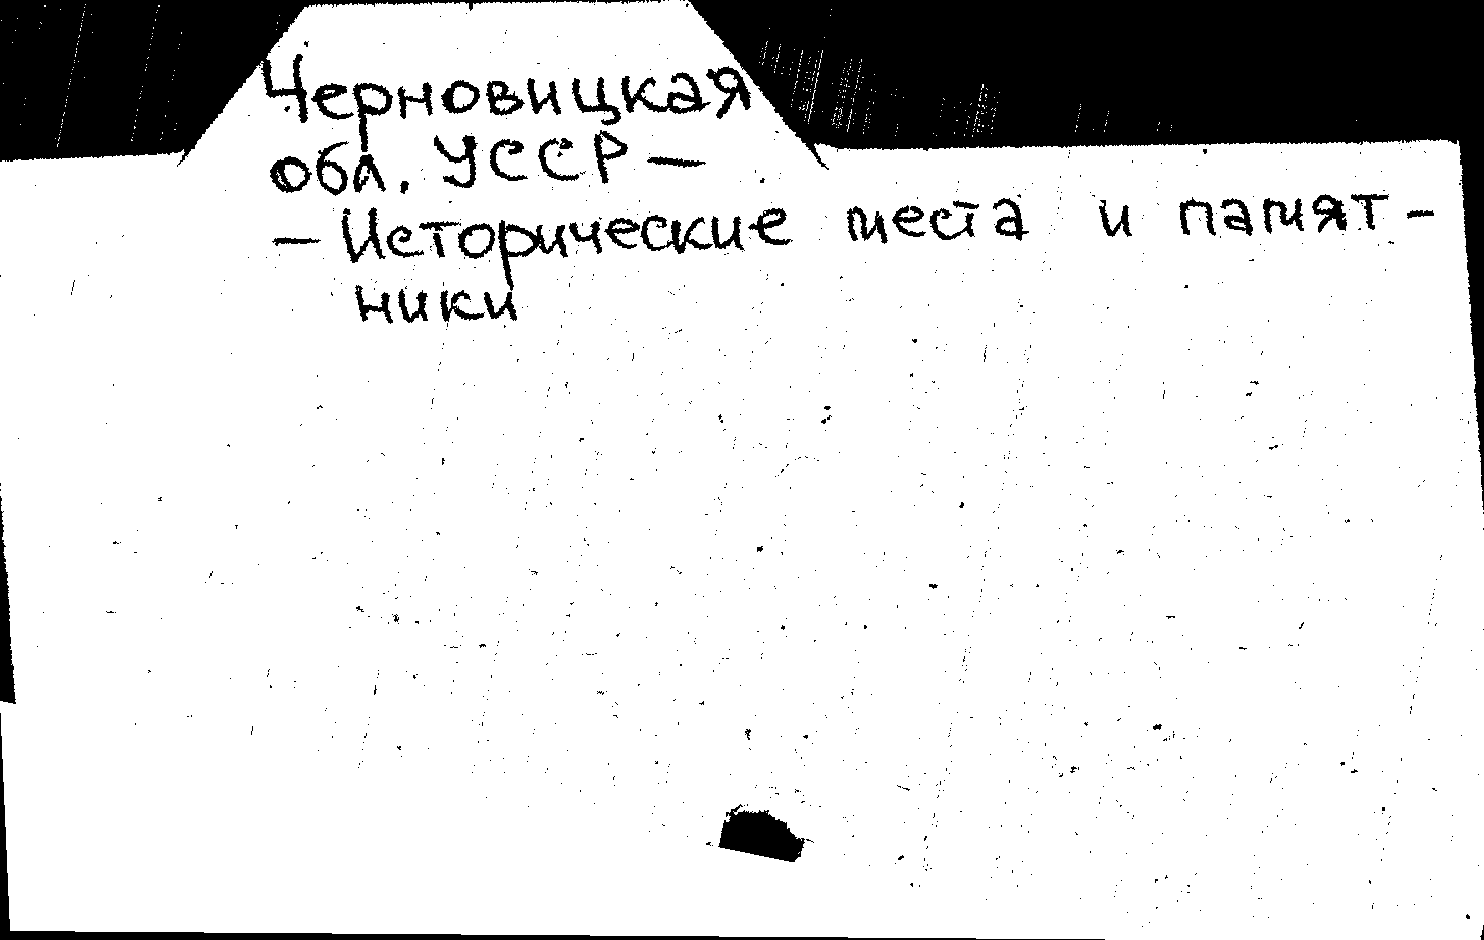 Черновицкая
обл. УССР —
— Исторические места и памят-
ники